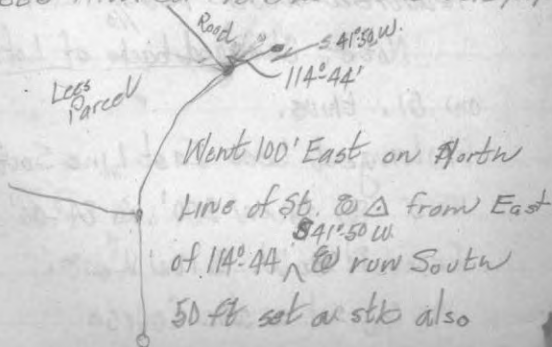 Road
S 41°-50 W.
114°-44'
Lees
Parcel
Went 100' East on North
Line of St. @ Δ from East
S 41°-50 W.
of 114°-44' ^ @ run South
50 ft set a stk also